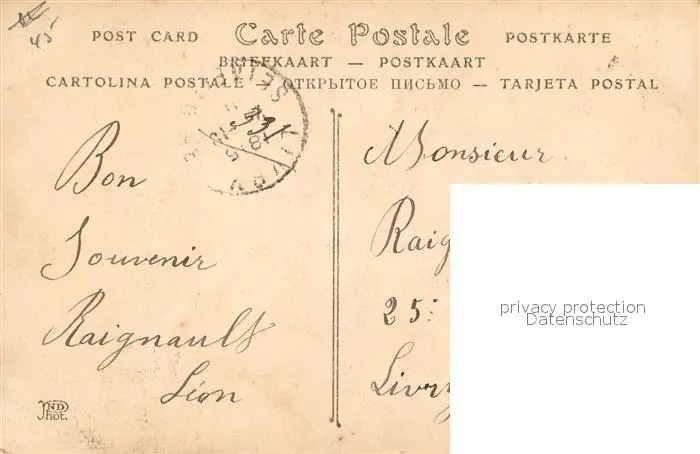 45
POST CARD Carte Postale POSTKARTE
BRIEFKAART — POSTKAART
CARTOLINA POSTALE — ОТКРЫТОЕ ПИСЬМО — TARJETA POSTAL
331
Bon
Souvenir
Raignault
Léon
ND
Phot.
Monsieur
Raig
25:
Livry
privacy protection
Datenschutz